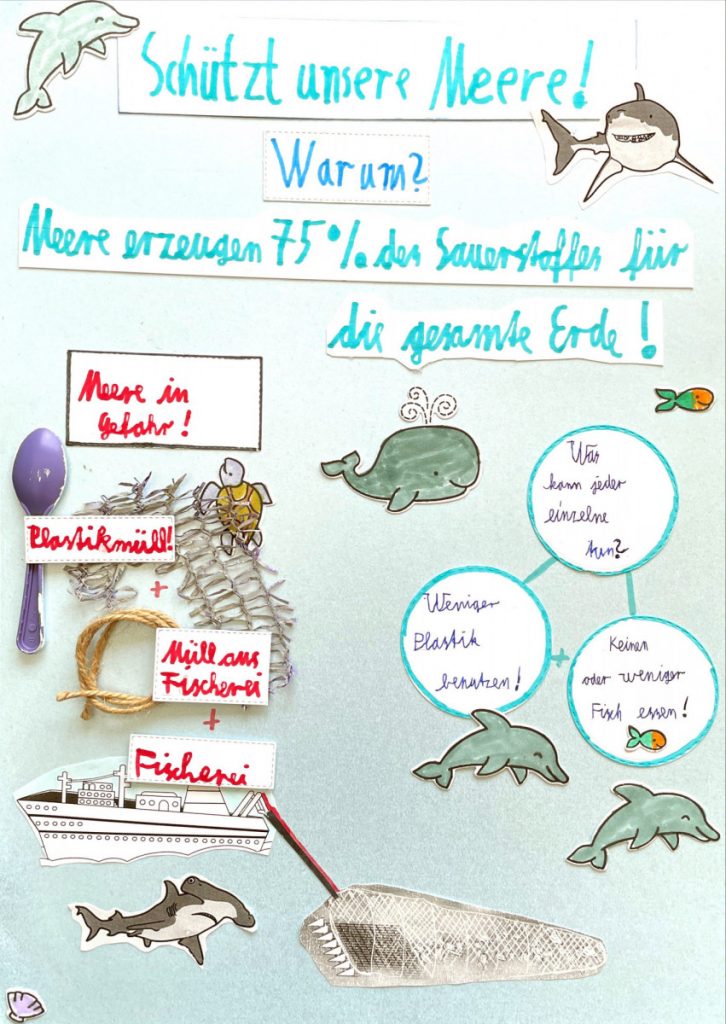 Schützt unsere Meere!
Warum?
Meere erzeugen 75% des Sauerstoffes für
die gesamte Erde!
Meere in
Gefahr!
Plastikmüll!
+
Müll aus
Fischerei
+
Fischerei
Was
kann jeder
einzelne
tun?
Weniger
Plastik
benutzen!
+
Keinen
oder weniger
Fisch essen!